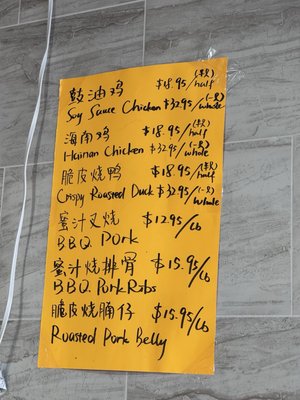 豉油鸡 $18.95/(半只)half
Soy Sauce Chicken $32.95/(一只)whole
海南鸡 $18.95/(半只)half
Hainan Chicken $32.95/(一只)whole
脆皮烧鸭 $18.95/(半只)half
Crispy Roasted Duck $32.95/(一只)whole
蜜汁叉烧 $12.95/LB
B.B.Q. Pork
蜜汁烧排骨 $15.95/LB
B.B.Q. Pork Ribs
脆皮烧腩仔 $15.95/LB
Roasted Pork Belly